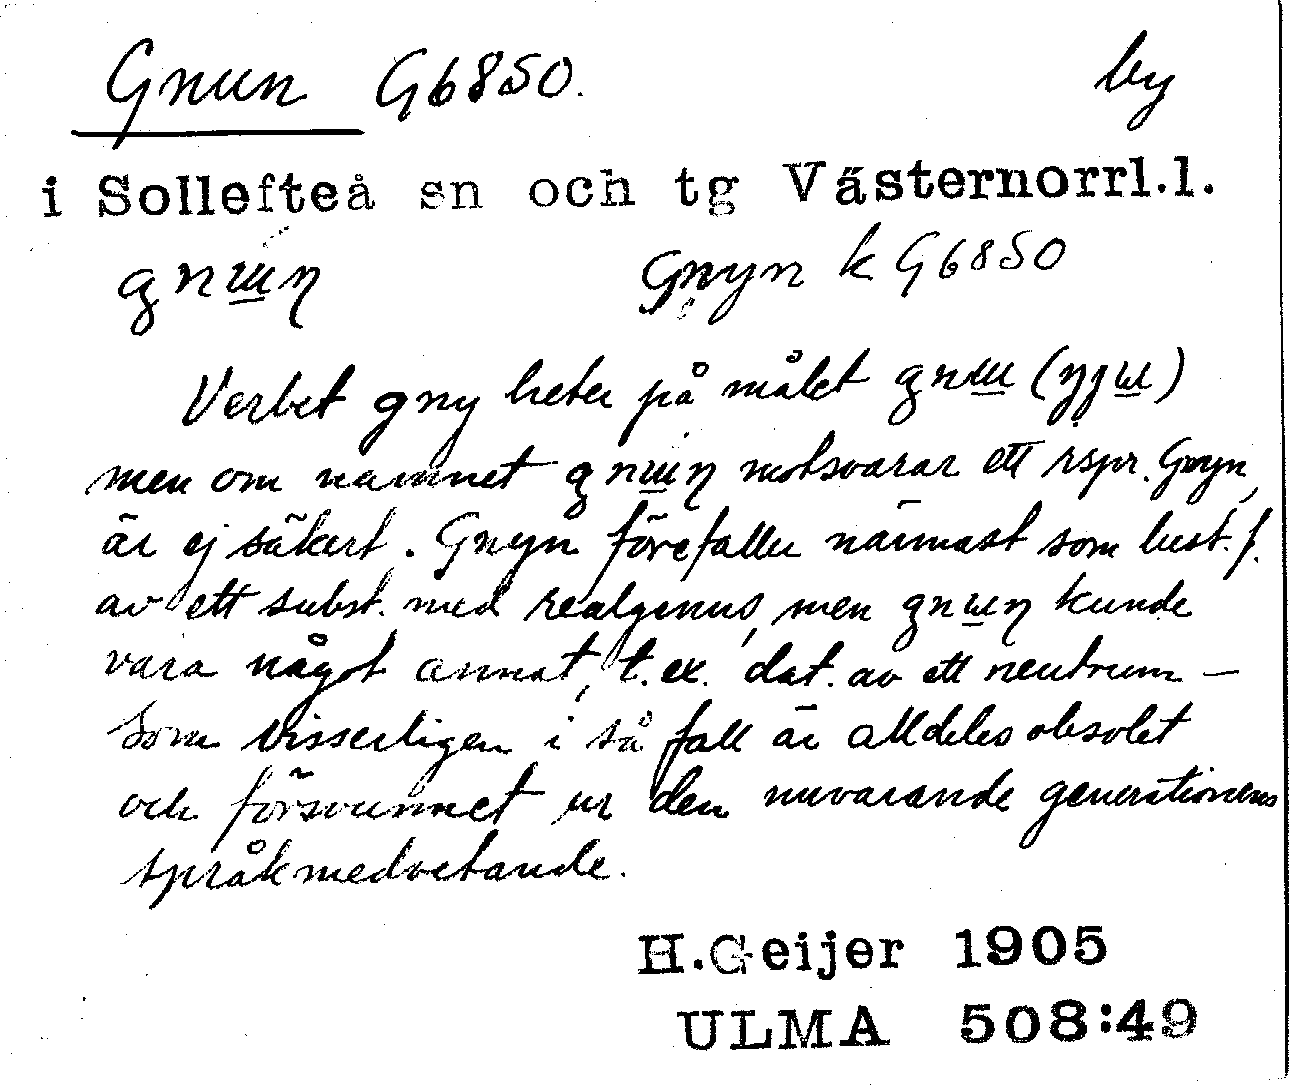 Gnun G6850. by
i Sollefteå sn och tg Västernorrl.l.
Gnyn k G6850
Verbet gny heter på målet
men om namnet motsvarar ett rspr. Gnyn,
är ej säkert. Gnyn förefaller närmast som best. f.
av ett subst. med realgenus, men kunde
vara något annat, t.ex. dat. av ett neutrum –
som visserligen i så fall är alldeles obsolet
och försvunnet ur den nuvarande generationens
språkmedvetande.
H.Geijer 1905
ULMA 508:49